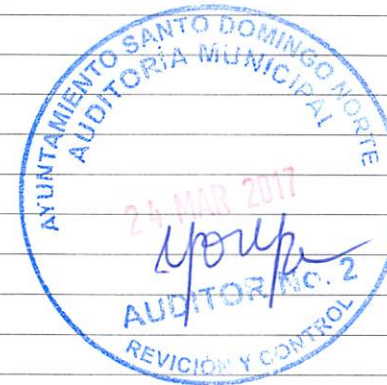 AYUNTAMIENTO SANTO DOMINGO NORTE
AUDITORÍA MUNICIPAL
24 MAR 2017
AUDITOR NO. 2
REVICIÓN Y CONTROL